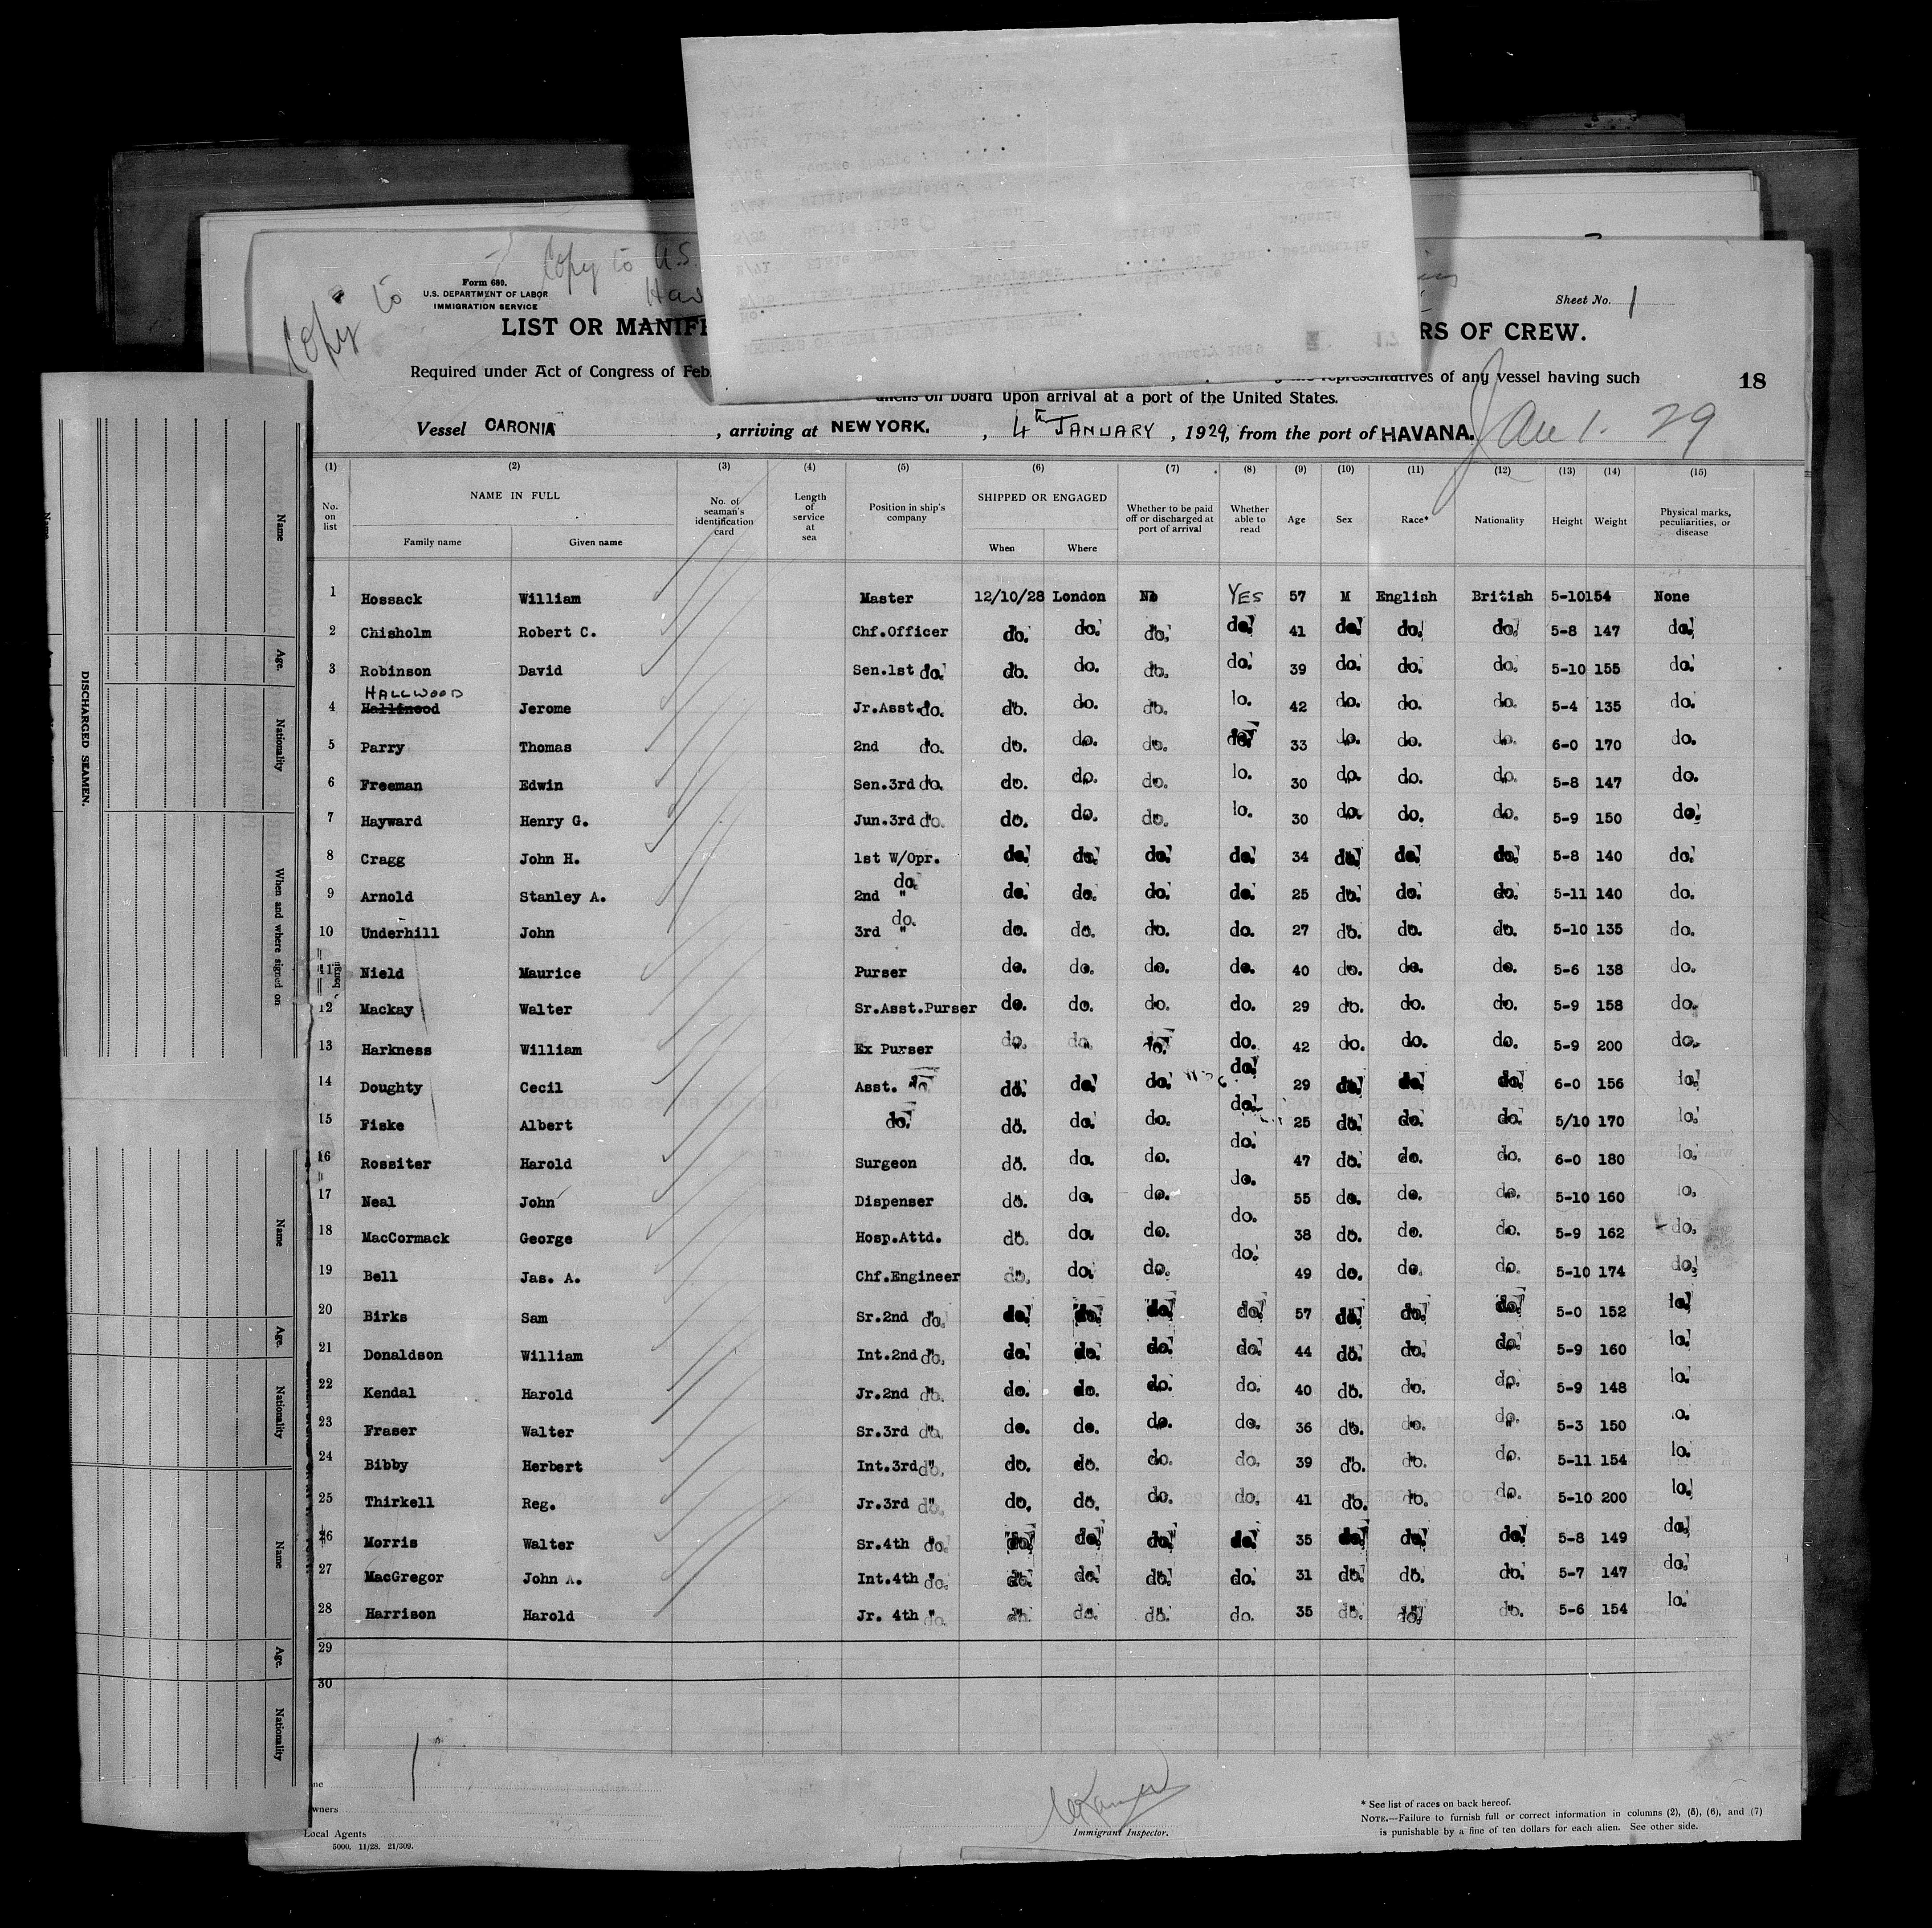 Copy to U.S.
Copy to
Form 680.
U.S. DEPARTMENT OF LABOR
IMMIGRATION SERVICE
Sheet No. 1
LIST OR MANIF RS OF CREW.
Required under Act of Congress of Feb representatives of any vessel having such
18
aliens on board upon arrival at a port of the United States.
Vessel CARONIA, arriving at NEW YORK., 4th JANUARY, 1929, from the port of HAVANA.
Jan 1. 29
(1) (2) (3) (4) (5) (6) (7) (8) (9) (10) (11) (12) (13) (14) (15)
No. on list NAME IN FULL Family name Given name No. of seaman's identification card Length of service at sea Position in ship's company SHIPPED OR ENGAGED When Where Whether to be paid off or discharged at port of arrival Whether able to read Age Sex Race* Nationality Height Weight Physical marks, peculiarities, or disease
1 Hossack William Master 12/10/28 London No YES 57 M English British 5-10 154 None
2 Chisholm Robert C. Chf.Officer do. do. do. do. 41 do. do. do. 5-8 147 do.
3 Robinson David Sen.1st do. do. do. do. do. 39 do. do. do. 5-10 155 do.
HALLWOOD
4 Hallinood Jerome Jr.Asst. do. do. do. do. do. 42 do. do. do. 5-4 135 do.
5 Parry Thomas 2nd do. do. do. do. do. 33 do. do. do. 6-0 170 do.
6 Freeman Edwin Sen.3rd do. do. do. do. do. 30 do. do. do. 5-8 147 do.
7 Hayward Henry G. Jun.3rd do. do. do. do. do. 30 do. do. do. 5-9 150 do.
8 Cragg John H. 1st W/Opr. do. do. do. do. 34 do. do. do. 5-8 140 do.
9 Arnold Stanley A. 2nd " do. do. do. do. do. 25 do. do. do. 5-11 140 do.
10 Underhill John 3rd " do. do. do. do. do. 27 do. do. do. 5-10 135 do.
11 Nield Maurice Purser do. do. do. do. 40 do. do. do. 5-6 138 do.
12 Mackay Walter Sr.Asst.Purser do. do. do. do. 29 do. do. do. 5-9 158 do.
13 Harkness William Ex Purser do. do. do. do. 42 do. do. do. 5-9 200 do.
14 Doughty Cecil Asst. do. do. do. do. do. 29 do. do. do. 6-0 156 do.
15 Fiske Albert do. do. do. do. do. 25 do. do. do. 5/10 170 do.
16 Rossiter Harold Surgeon do. do. do. do. 47 do. do. do. 6-0 180 do.
17 Neal John Dispenser do. do. do. do. 55 do. do. do. 5-10 160 do.
18 MacCormack George Hosp.Attd. do. do. do. do. 38 do. do. do. 5-9 162 do.
19 Bell Jas. A. Chf.Engineer do. do. do. do. 49 do. do. do. 5-10 174 do.
20 Birks Sam Sr.2nd do. do. do. do. do. 57 do. do. do. 5-0 152 do.
21 Donaldson William Int.2nd do. do. do. do. do. 44 do. do. do. 5-9 160 do.
22 Kendal Harold Jr.2nd do. do. do. do. do. 40 do. do. do. 5-9 148 do.
23 Fraser Walter Sr.3rd do. do. do. do. do. 36 do. do. do. 5-3 150 do.
24 Bibby Herbert Int.3rd do. do. do. do. do. 39 do. do. do. 5-11 154 do.
25 Thirkell Reg. Jr.3rd do. do. do. do. do. 41 do. do. do. 5-10 200 do.
26 Morris Walter Sr.4th do. do. do. do. do. 35 do. do. do. 5-8 149 do.
27 MacGregor John A. Int.4th do. do. do. do. do. 31 do. do. do. 5-7 147 do.
28 Harrison Harold Jr. 4th do. do. do. do. do. 35 do. do. do. 5-6 154 do.
29
30
wners
Local Agents
5000. 11/28. 21/309.
Immigrant Inspector.
* See list of races on back hereof.
NOTE.—Failure to furnish full or correct information in columns (2), (5), (6), and (7)
is punishable by a fine of ten dollars for each alien. See other side.
DISCHARGED SEAMEN.
Name Age. Nationality When and where signed on
Name Age. Nationality
Name Age. Nationality